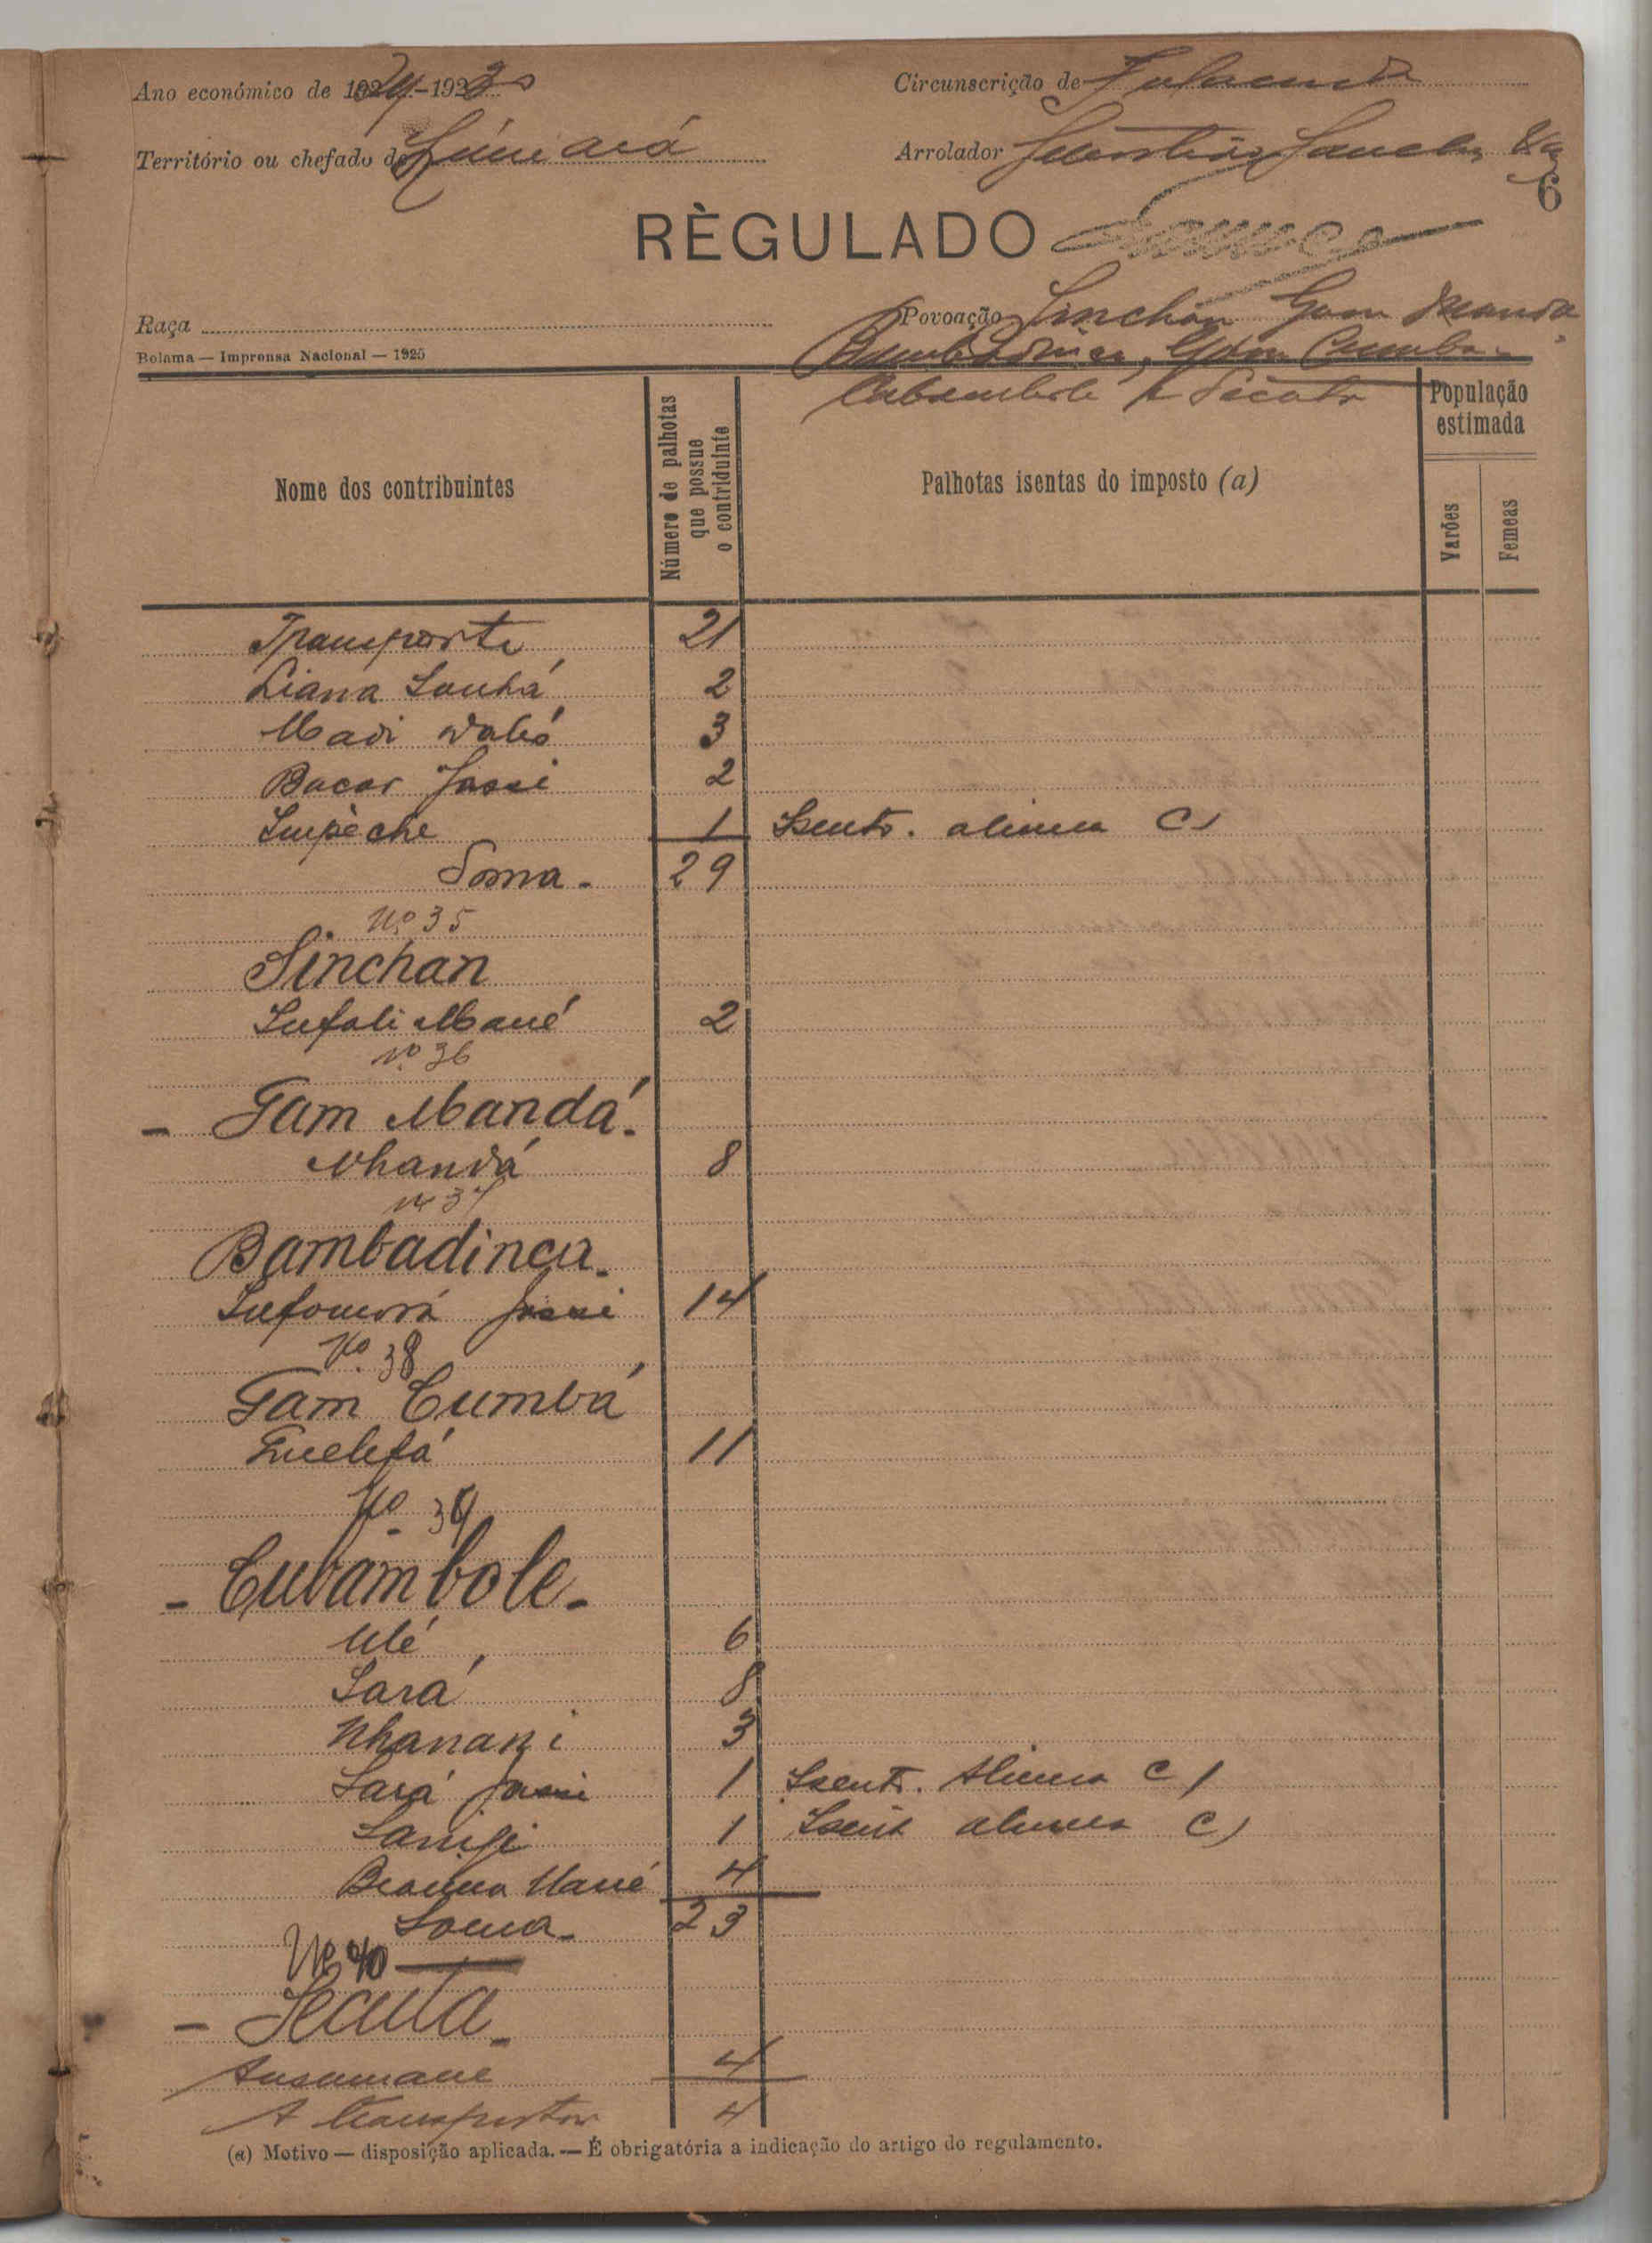 Ano económico de 192 -193
Circunscrição de Fulacunda
Território ou chefado de
Arrolador Sanches Vaz
6
RÈGULADO
Raça
Povoação Sinchan Gam Manda
Bolama — Imprensa Nacional — 1925
Bambadinca, Gam Cumba
Cubambole e Secuta
Nome dos contribuintes
Número de palhotas que possue o contriduinte
Palhotas isentas do imposto (a)
População estimada
Varões
Femeas
Transporte 21
Liana Sonhá 2
Madi 3
Bacar Jassi 2
Impèche 1 Isento. alinea C)
Soma - 29
Nº 35
Sinchan
Infali Mané 2
Nº 36
- Gam Mandá -
Nhandá 8
Nº 37
Bambadinca -
Jassi 14
Nº 38
Gam Cumbá
Guelefá 11
Nº 39
- Cubambole -
Ulé 6
Sará 8
Nhanani 3
Sará Jassi 1 Isento. Alinea C)
1 Isento alinea C)
Mané 4
Soma - 23
Nº 40
- Secuta -
Ansumane 4
A transportar 4
(a) Motivo — disposição aplicada. — É obrigatória a indicação do artigo do regulamento.